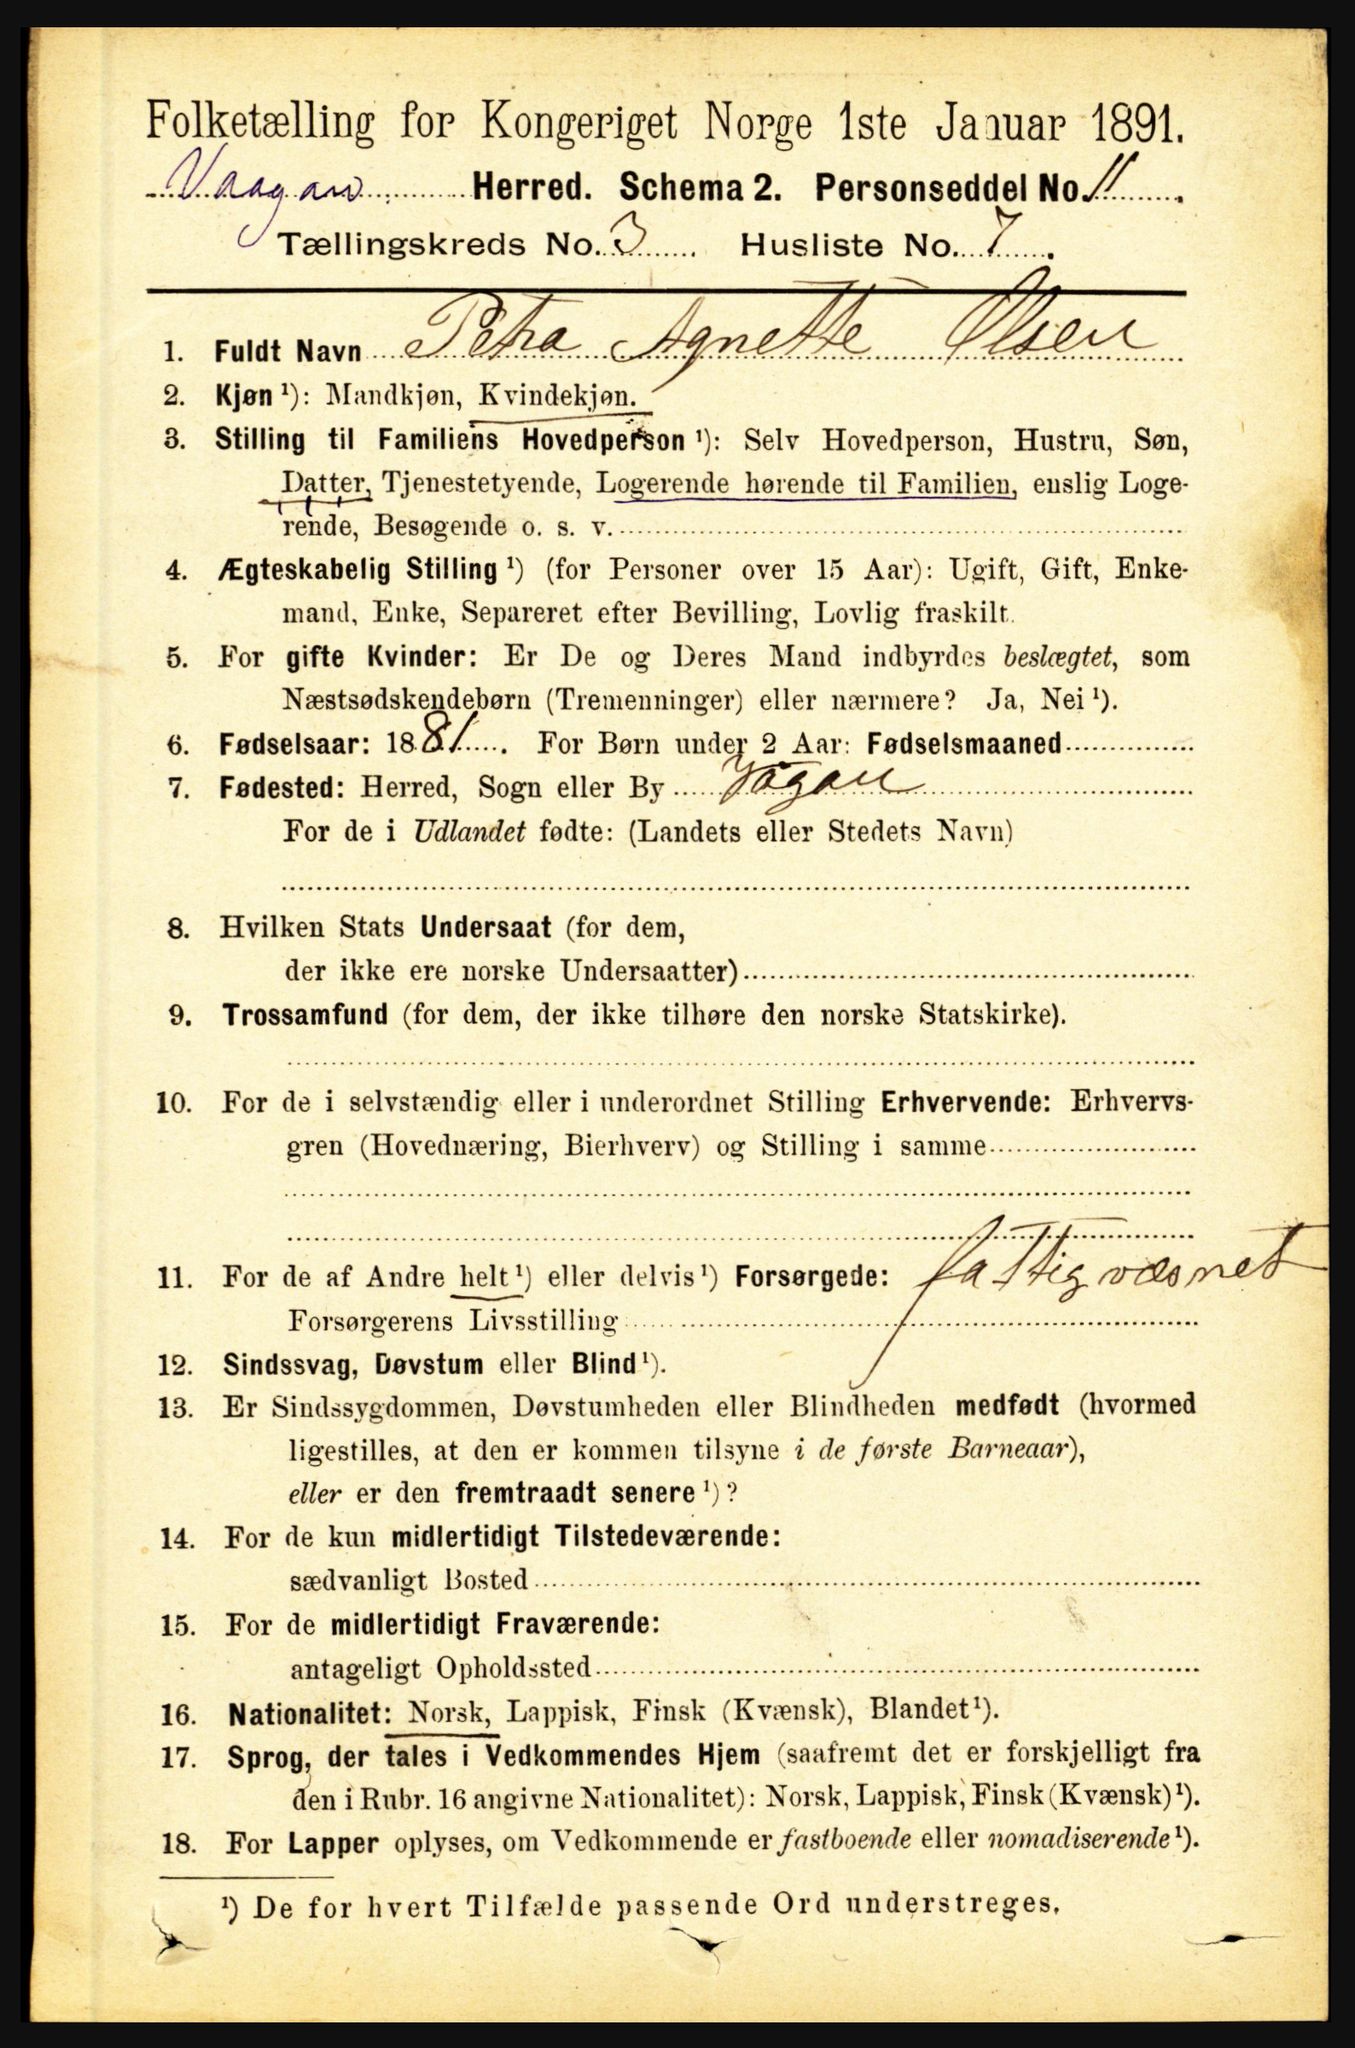 Folketælling for Kongeriget Norge 1ste Januar 1891.
Vaagan Herred. Schema 2. Personseddel No. 11.
Tællingskreds No. 3 Husliste No. 7.
1. Fuldt Navn Petra Agnette Olsen
2. Kjøn ¹): Mandkjøn, Kvindekjøn.
3. Stilling til Familiens Hovedperson ¹): Selv Hovedperson, Hustru, Søn,
Datter, Tjenestetyende, Logerende hørende til Familien, enslig Loge-
rende, Besøgende o. s. v.
4. Ægteskabelig Stilling ¹) (for Personer over 15 Aar): Ugift, Gift, Enke-
mand, Enke, Separeret efter Bevilling, Lovlig fraskilt.
5. For gifte Kvinder: Er De og Deres Mand indbyrdes beslægtet, som
Næstsødskendebørn (Tremenninger) eller nærmere? Ja, Nei ¹).
6. Fødselsaar: 1881. For Børn under 2 Aar: Fødselsmaaned
7. Fødested: Herred, Sogn eller By Vågan
For de i Udlandet fødte: (Landets eller Stedets Navn)
8. Hvilken Stats Undersaat (for dem,
der ikke ere norske Undersaatter)
9. Trossamfund (for dem, der ikke tilhøre den norske Statskirke).
10. For de i selvstændig eller i underordnet Stilling Erhvervende: Erhvervs-
gren (Hovednæring, Bierhverv) og Stilling i samme
11. For de af Andre helt ¹) eller delvis ¹) Forsørgede: fattigvæsnet
Forsørgerens Livsstilling
12. Sindssvag, Døvstum eller Blind ¹).
13. Er Sindssygdommen, Døvstumheden eller Blindheden medfødt (hvormed
ligestilles, at den er kommen tilsyne i de første Barneaar),
eller er den fremtraadt senere ¹)?
14. For de kun midlertidigt Tilstedeværende:
sædvanligt Bosted
15. For de midlertidigt Fraværende:
antageligt Opholdssted
16. Nationalitet: Norsk, Lappisk, Finsk (Kvænsk), Blandet ¹).
17. Sprog, der tales i Vedkommendes Hjem (saafremt det er forskjelligt fra
den i Rubr. 16 angivne Nationalitet): Norsk, Lappisk, Finsk (Kvænsk) ¹).
18. For Lapper oplyses, om Vedkommende er fastboende eller nomadiserende ¹).
¹) De for hvert Tilfælde passende Ord understreges.